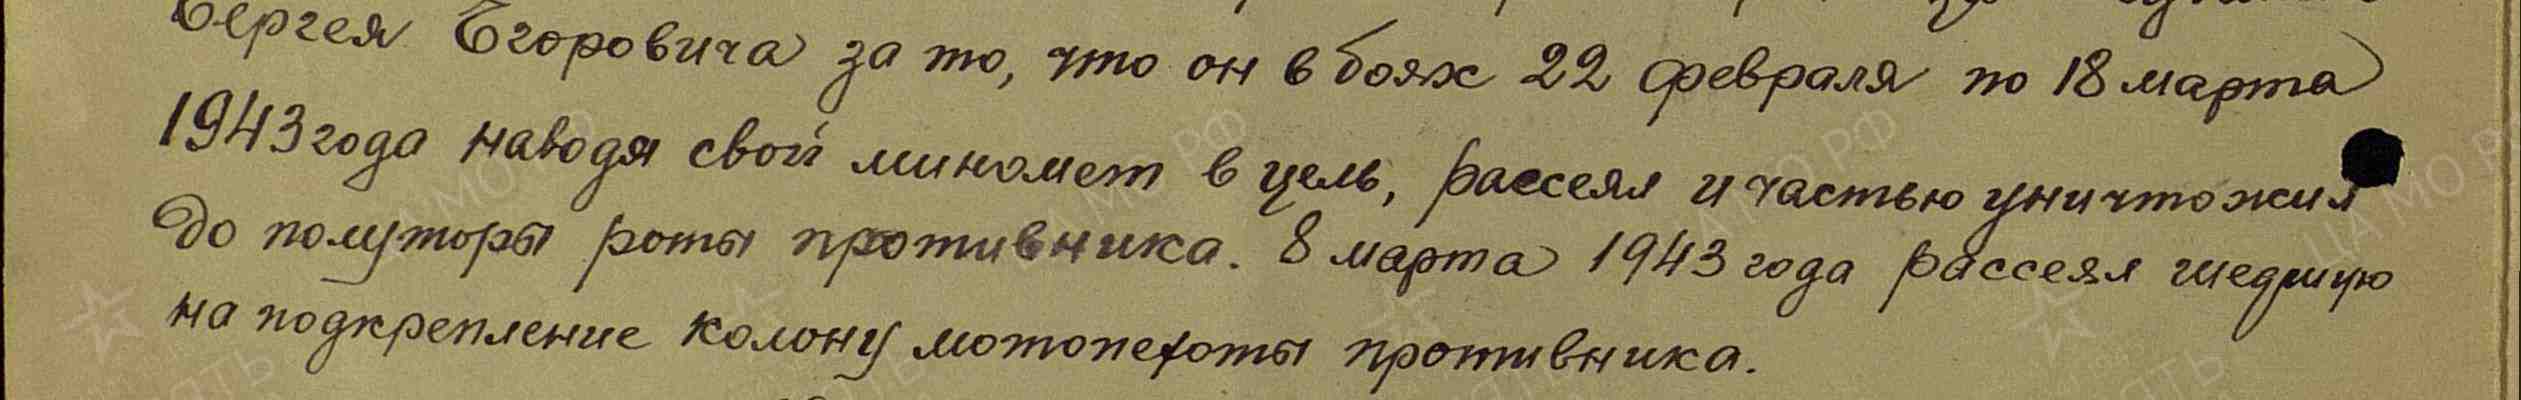 Сергея Егоровича за то, что он в боях 22 февраля по 18 марта
1943 года наводя свой миномет в цель, рассеял и частью уничтожил
до полуторы роты противника. 8 марта 1943 года рассеял шедшую
на подкрепление колону мотопехоты противника.